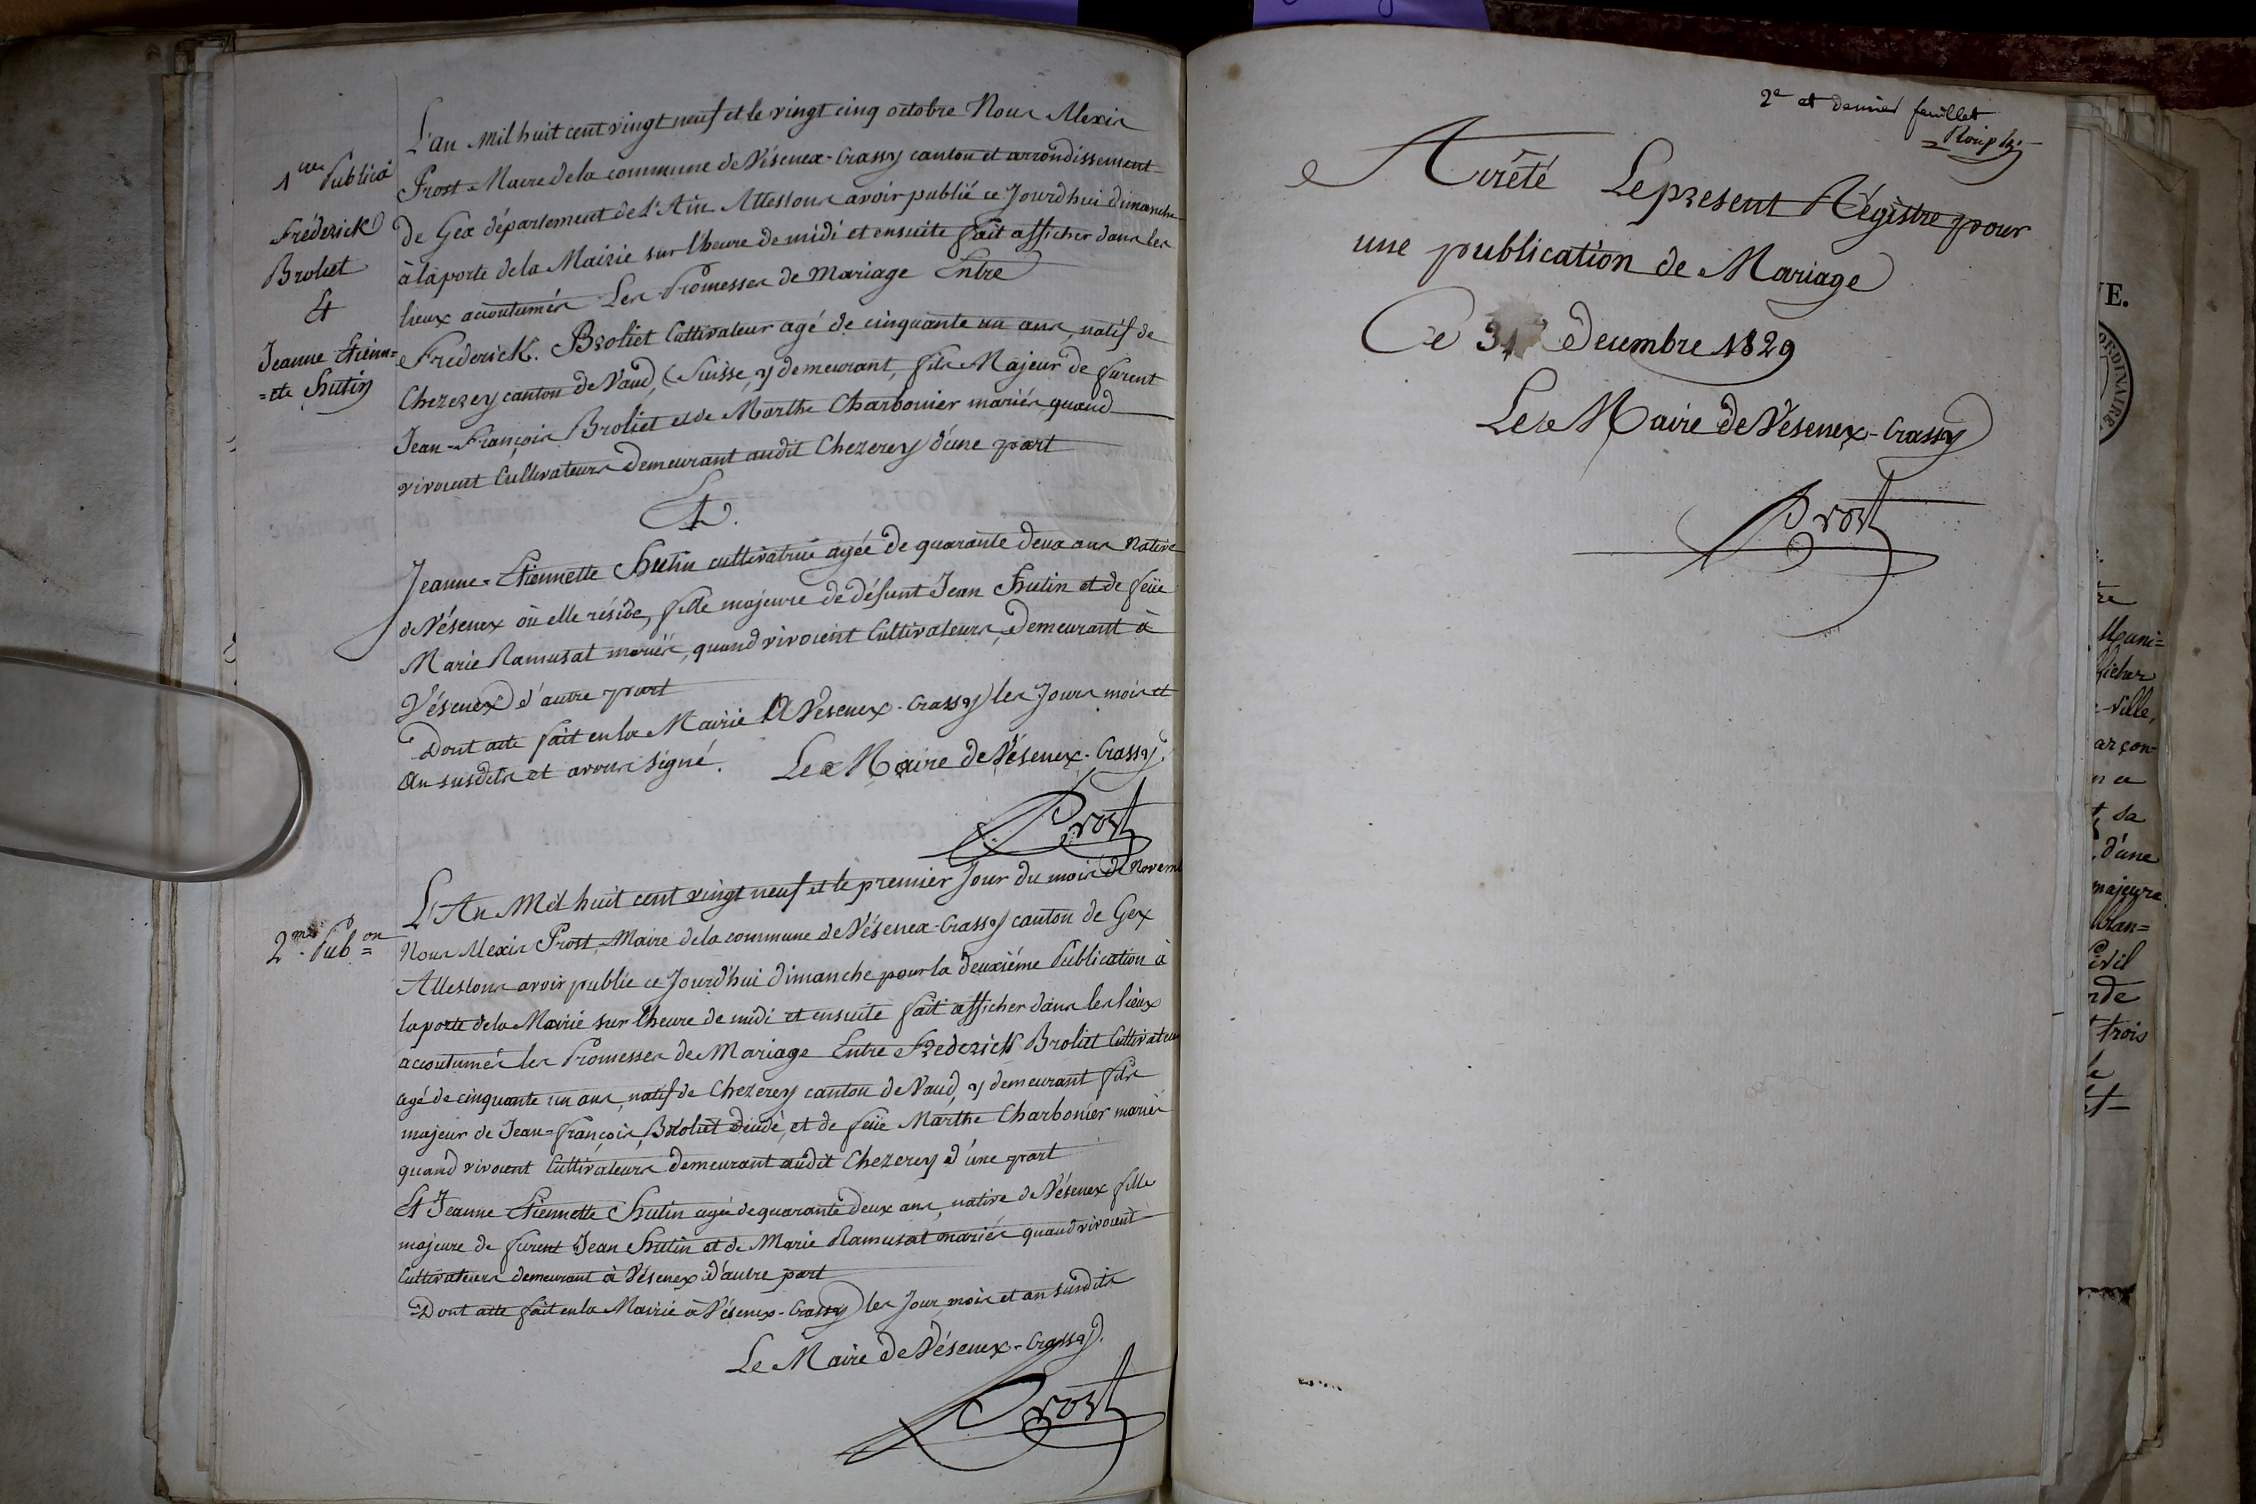 1ere Publicon
Fréderick
Broliet
Et
Jeanne Etienn=
=ette Hutin
L'an Mil huit cent vingt neuf et le vingt cinq octobre Nous Alexis
Prost Maire de la commune de Vésenex-Crassy canton et arrondissement
de Gex département de l'Ain Attestons avoir publié ce Jourd'hui dimanche
à la porte de la Mairie sur l'heure de midi et ensuite fait afficher dans les
lieux accoutumés Les Promesses de Mariage Entre
Fréderick. Broliet Cultivateur agé de cinquante un ans, natif de
Chezerey canton de Vaud, (Suisse, y demeurant, fils Majeur de furent
Jean-François Broliet et de Marthe Charbonier mariés, quand
vivoient Cultivateurs demeurant audit Chezerey d'une part
Et.
Jeanne-Etiennette Hutin cultivatrice agée de quarante deux ans Native
de Vésenex où elle réside, fille majeure de défunt Jean Hutin et de feüe
Marie Ramusat mariés, quand vivoient Cultivateurs, demeurant à
Vésenex d'autre part
Dont acte fait en la Mairie A Vesenex-Crassy les Jours mois et
An susdits et avons signé. Le Maire de Vésenex-Crassy.
Prost
2me. Pub=on
L'An Mil huit cent vingt neuf et le premier Jour du mois de Novem
Nous Alexis Prost, Maire de la commune de Vésenex-Crassy canton de Gex
Attestons avoir publié ce Jourd'hui dimanche pour la deuxiéme Publication à
la porte de la Mairie sur l'heure de midi et ensuite fait afficher dans les lieux
accoutumés les Promesses de Mariage Entre Fréderick Broliet Cultivateur
agé de cinquante un ans, natif de Chezerey canton de Vaud, y demeurant fils
majeur de Jean-François, Broliet décédé, et de feüe Marthe Charbonier mariés
quand vivoient Cultivateurs demeurant audit Chezerey d'une part
Et Jeanne Etiennette Hutin agée de quarante deux ans, native de Vésenex fille
majeure de furent Jean Hutin et de Marie Ramusat mariés quand vivoient
Cultivateurs demeurant à Vésenex d'autre part
Dont acte fait en la Mairie à Vésenex-Crassy les Jour, mois et an susdits
Le Maire de Vésenex-Crassy.
Prost
2e et dernier feuillet
Arrêté Le présent Régistre pour
une publication de Mariage
Ce 31 Decembre 1829
Le Maire de Vésenex-Crassy
Prost
VE.
ORDINAIRE
re
Muni=
ficher
-ville,
arçon-
n ce
sa
d'une
majeure
blan=
Civil
nde
trois
et